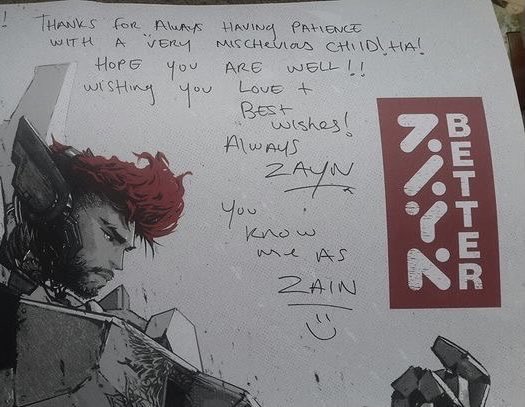 ! THANKS FOR ALWAYS HAVING PATIENCE
WITH A VERY MISCHEVIOUS CHILD! HA!
HOPE YOU ARE WELL!!
WISHING YOU LOVE +
BEST
WISHES!
ALWAYS
ZAYN
YOU
KNOW
ME AS
ZAIN
ZAYN
BETTER